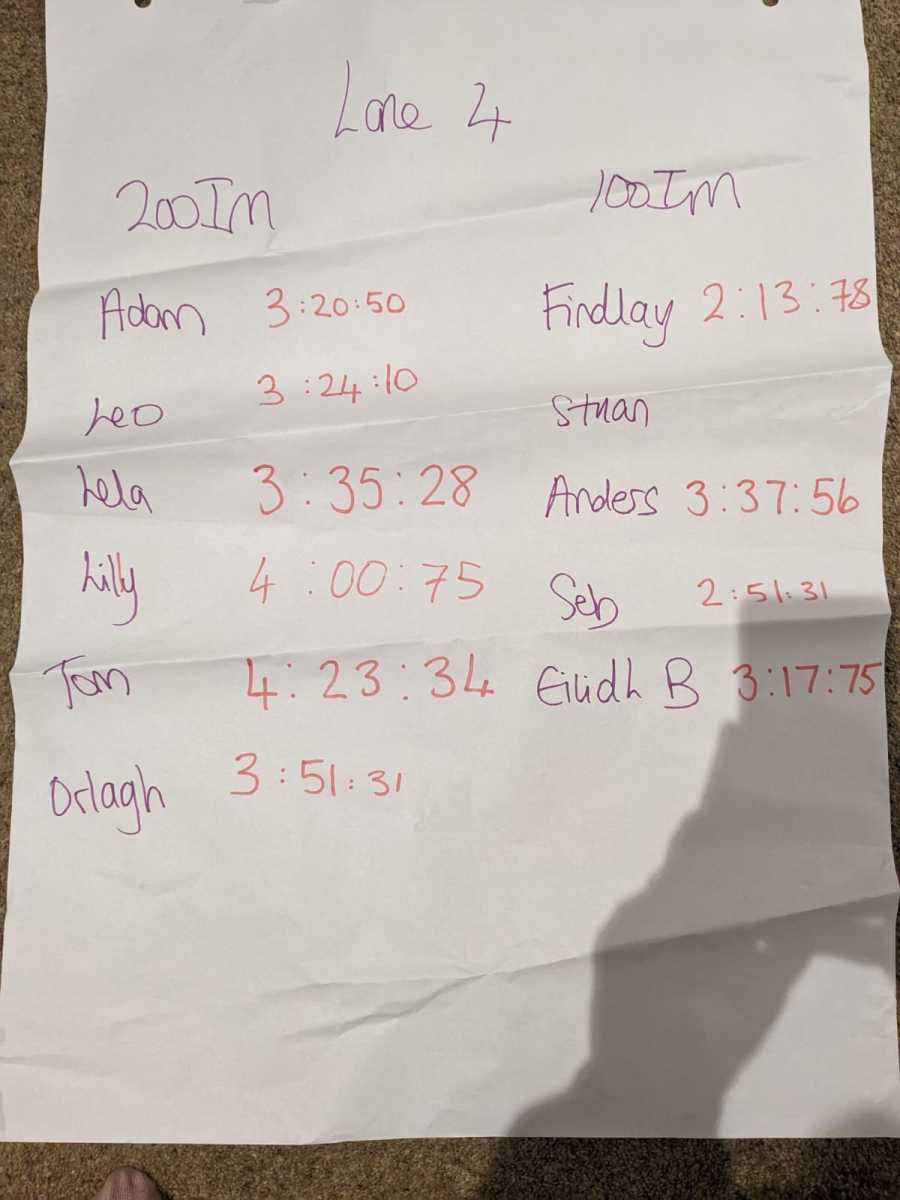 Lane 4
200Im
Adam 3:20:50
Leo 3:24:10
Lela 3:35:28
Lilly 4:00:75
Tom 4:23:34
Orlagh 3:51:31
100Im
Findlay 2:13:78
Stuan
Anders 3:37:56
Seb 2:51:31
Eilidh B 3:17:75